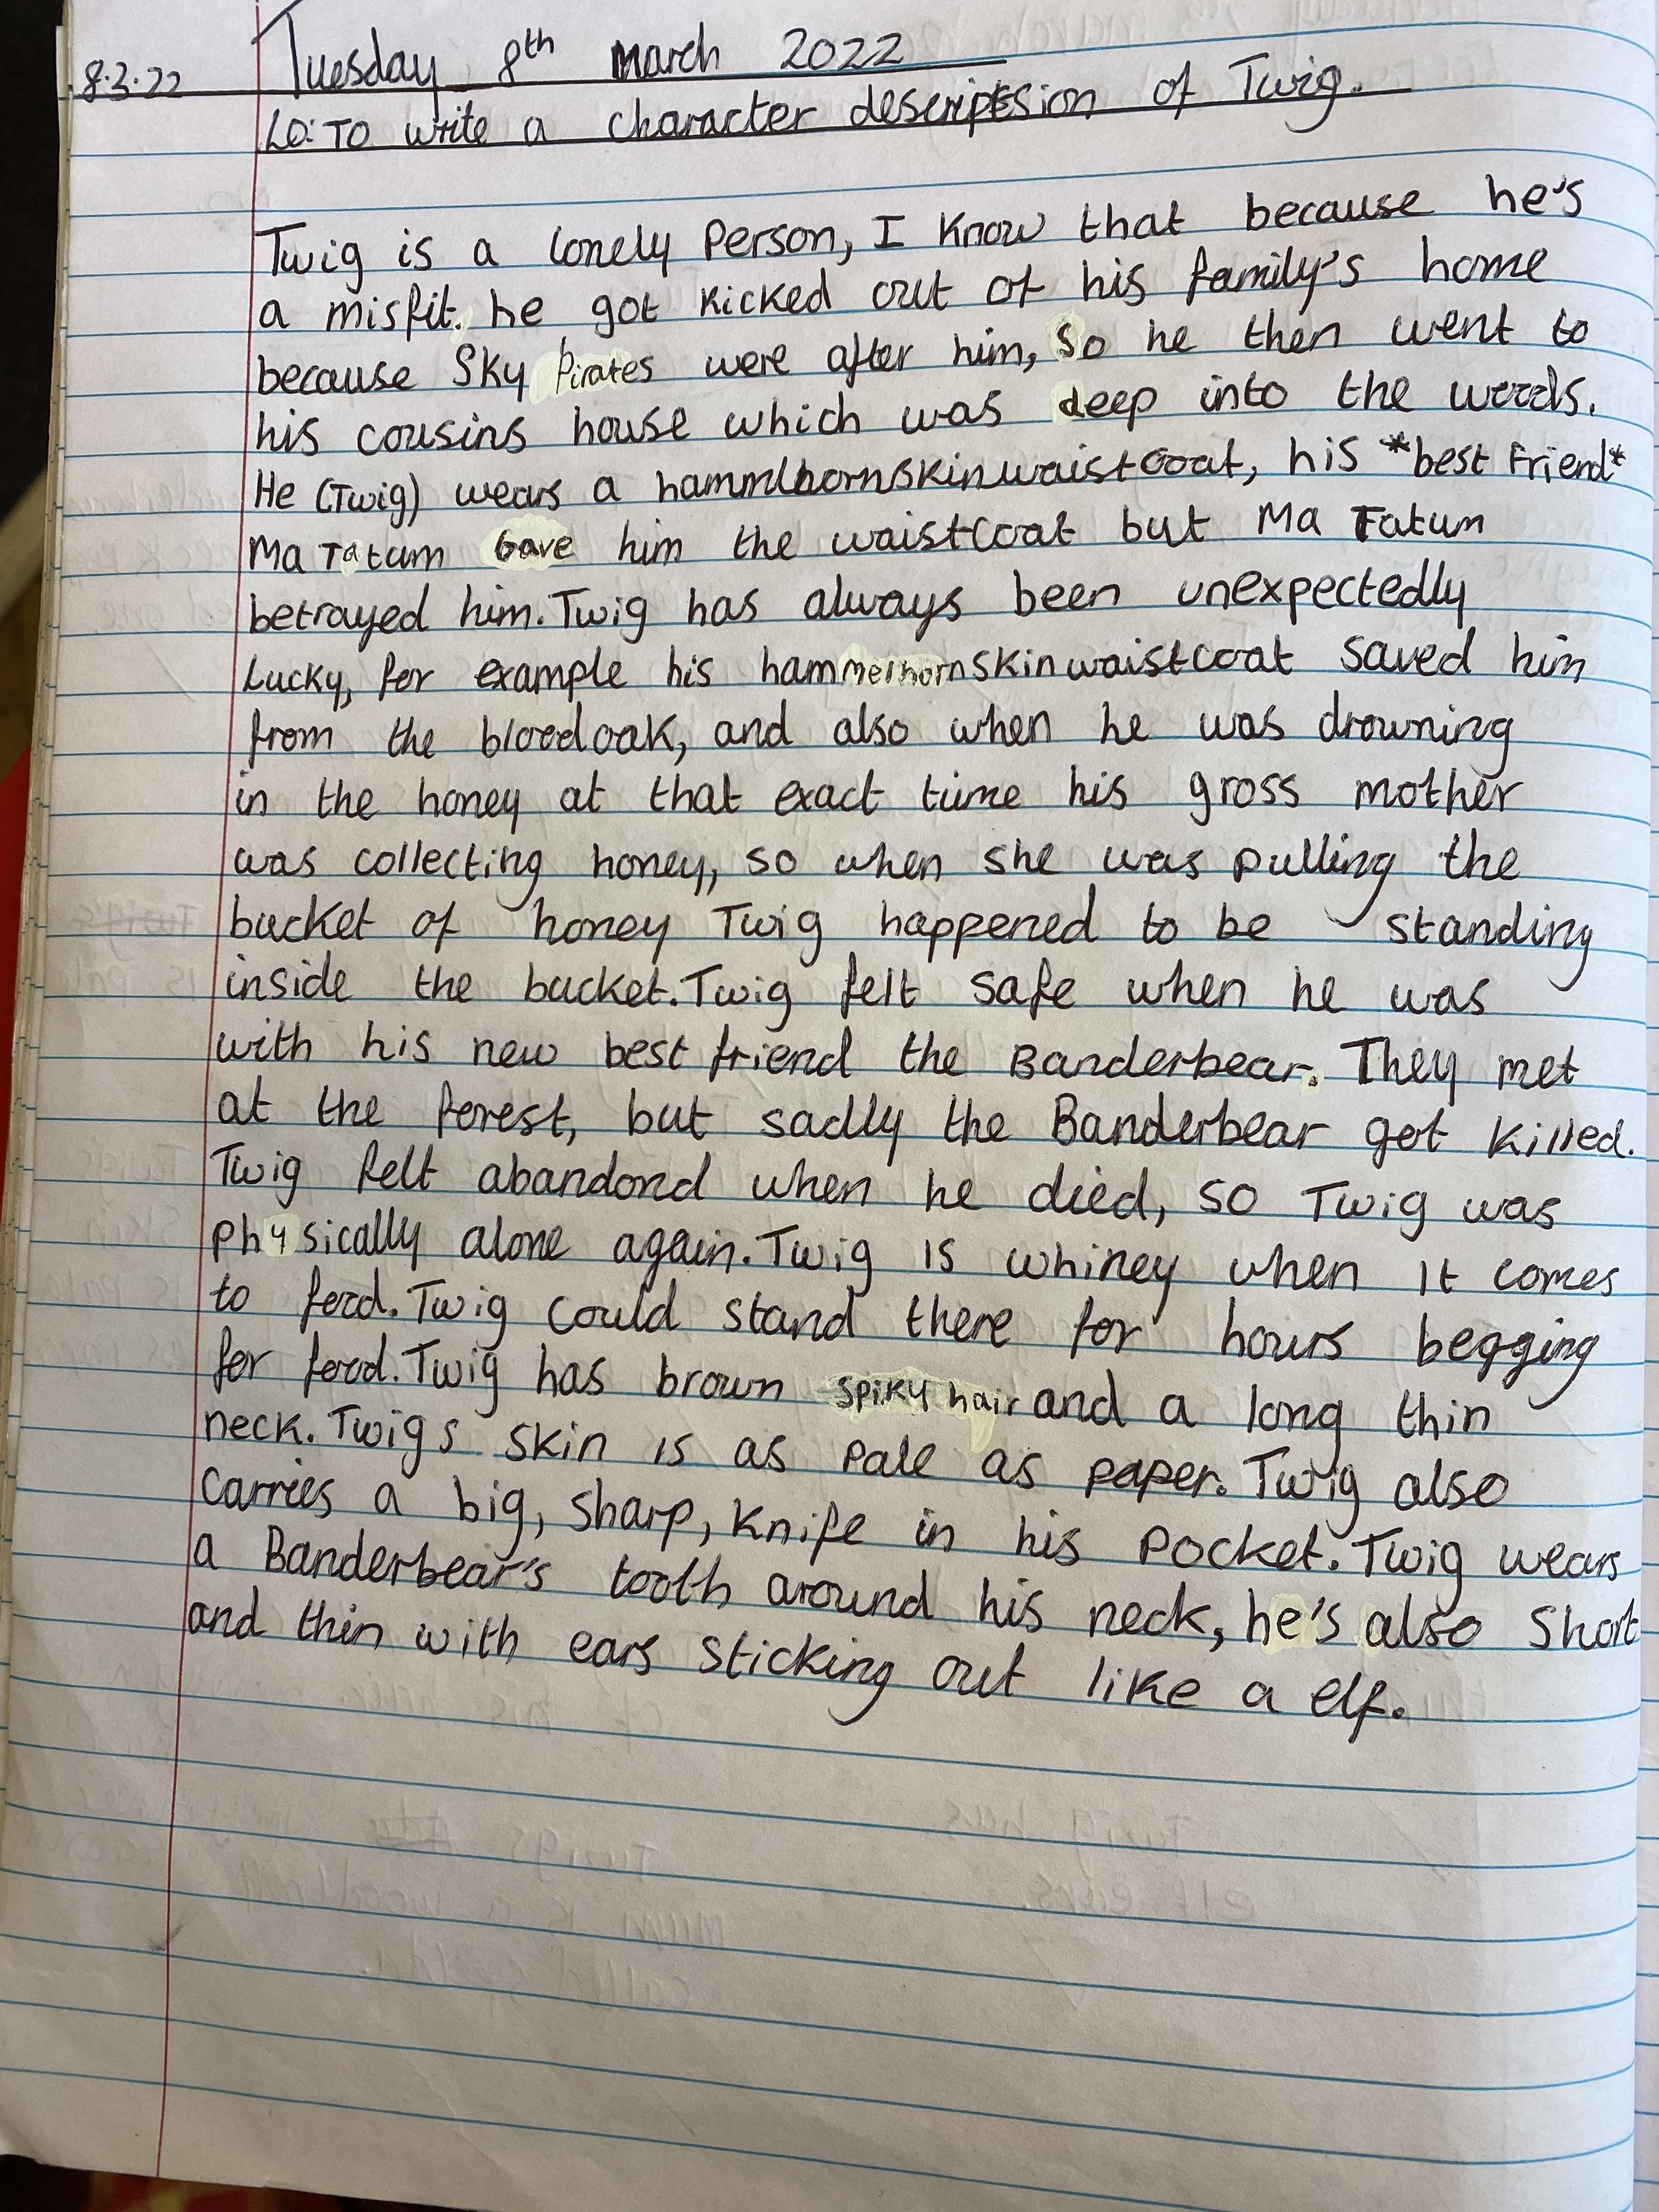 8.3.22 Tuesday 8th March 2022
LO: To write a character descriptsion of Twig.
Twig is a lonely Person, I know that because he's
a misfit. he got kicked out of his family's home
because Sky Pirates were after him, So he then went to
his cousins house which was deep into the woods.
He (Twig) wears a hammlhornskinwaistcoat, his *best Friend*
Ma Tatum Gave him the waistcoat but Ma Tatum
betrayed him. Twig has always been unexpectedly
Lucky, for example his hammelhornskinwaistcoat saved him
from the bloodoak, and also when he was drowning
in the honey at that exact time his gross mother
was collecting honey, so when she was pulling the
bucket of honey Twig happened to be standing
inside the bucket. Twig felt safe when he was
with his new best friend the Banderbear. They met
at the forest, but sadly the Banderbear got killed.
Twig felt abandond when he died, so Twig was
physically alone again. Twig is whiney when it comes
to food. Twig could stand there for hours begging
for food. Twig has brown spiky hair and a long thin
neck. Twigs skin is as pale as paper. Twig also
carries a big, sharp, knife in his pocket. Twig wears
a Banderbear's tooth around his neck, he's also short
and thin with ears sticking out like a elf.